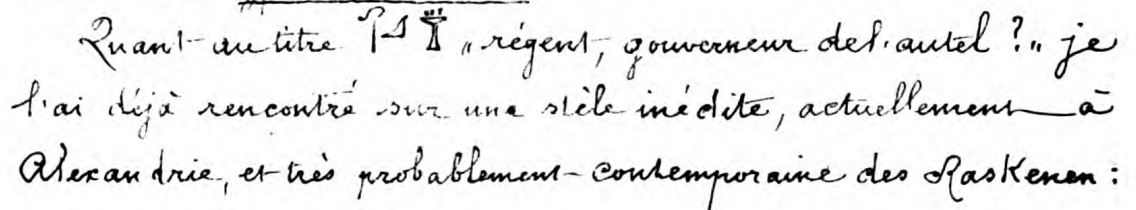 Quant au titre 𓋾𓈎𓐍 „régent, gouverneur de l'autel ?„ je
l'ai déjà rencontré sur une stèle inédite, actuellement à
Alexandrie, et très probablement contemporaine des Raskenen :